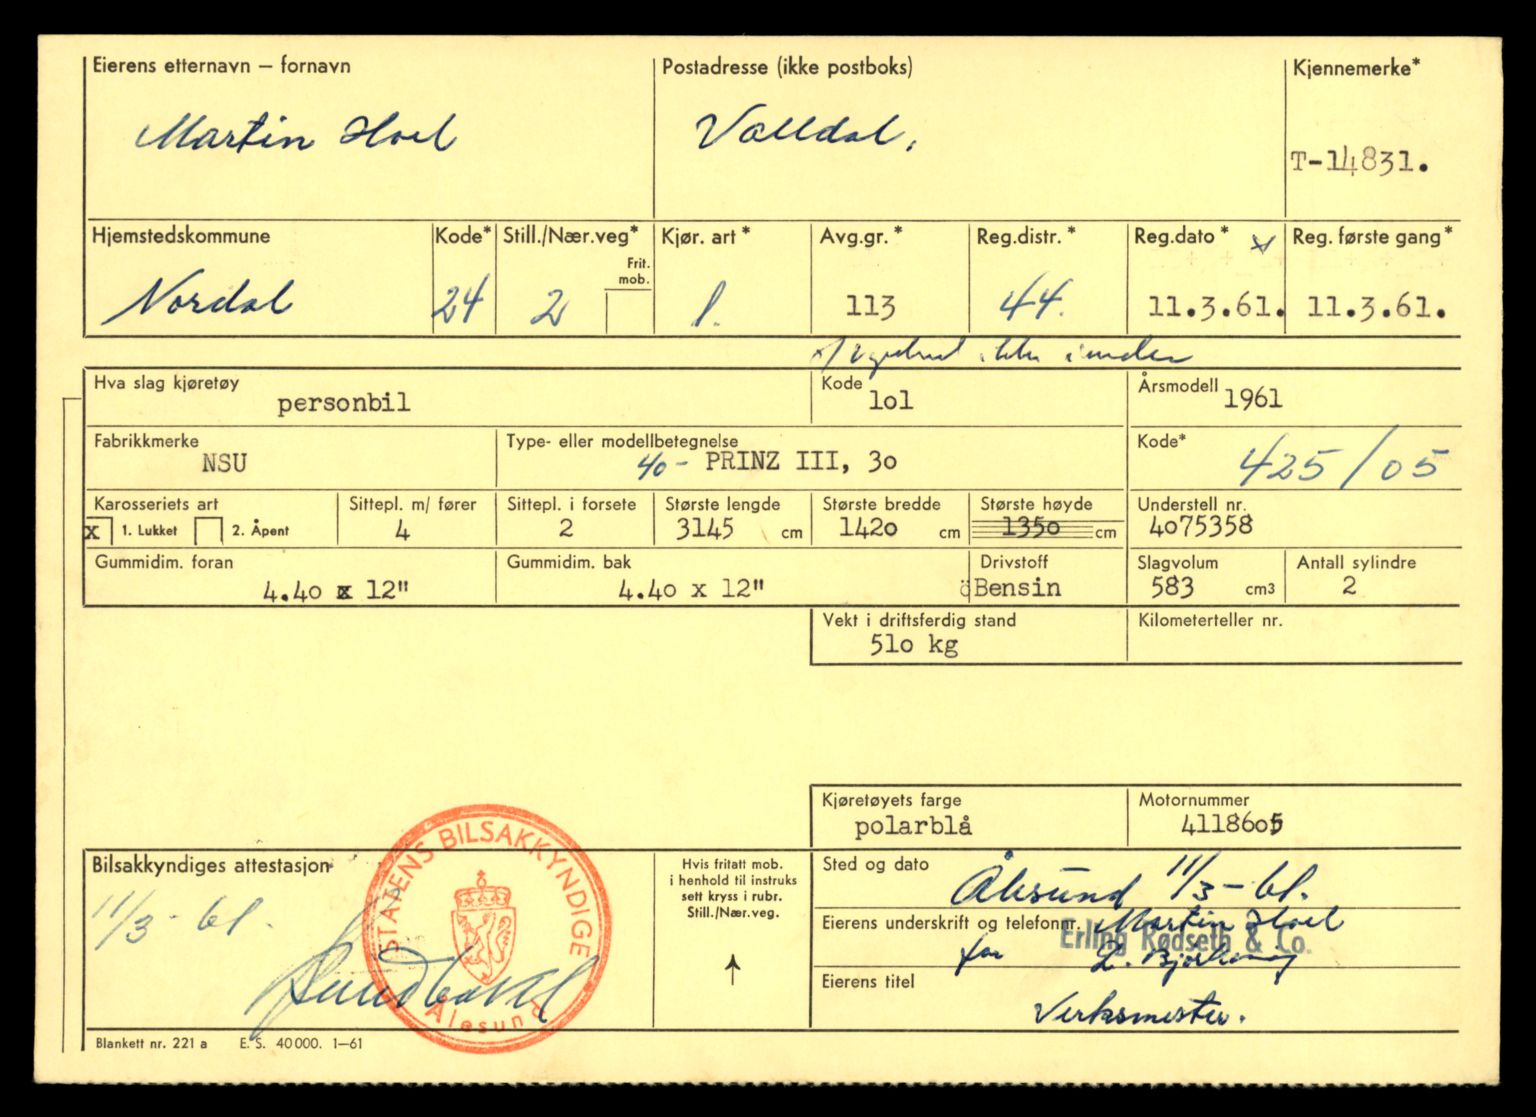 Eierens etternavn – fornavn Postadresse (ikke postboks) Kjennemerke*
Martin Hoel Valldal, T-14831.
Hjemstedskommune Kode* Still./Nær.veg* Kjør. art* Avg.gr.* Reg.distr.* Reg.dato* Reg. første gang*
Frit. mob.
Nordal 24 2 1. 113 44. 11.3.61. 11.3.61.
ikke
Hva slag kjøretøy Kode Årsmodell
personbil lol 1961
Fabrikkmerke Type- eller modellbetegnelse Kode*
NSU 40- PRINZ III, 3o 425/05
Karosseriets art Sittepl. m/ fører Sittepl. i forsete Største lengde Største bredde Største høyde Understell nr.
x 1. Lukket 2. Åpent 4 2 3145 cm 142o cm 135o cm 4o75358
Gummidim. foran Gummidim. bak Drivstoff Slagvolum Antall sylindre
4.4o x 12" 4.4o x 12" Bensin 583 cm3 2
Vekt i driftsferdig stand Kilometerteller nr.
51o kg
Kjøretøyets farge Motornummer
polarblå 41186o5
Bilsakkyndiges attestasjon Hvis fritatt mob. Sted og dato
i henhold til instruks
sett kryss i rubr.
Still./Nær.veg.
11/3-61. Ålesund 11/3-61.
STATENS BILSAKKYNDIGE
Ålesund
Eierens underskrift og telefonnr. Martin Hoel
Erling Rødseth & Co.
for
Eierens titel
Verksmester.
Blankett nr. 221 a E. S. 40 000. 1–61